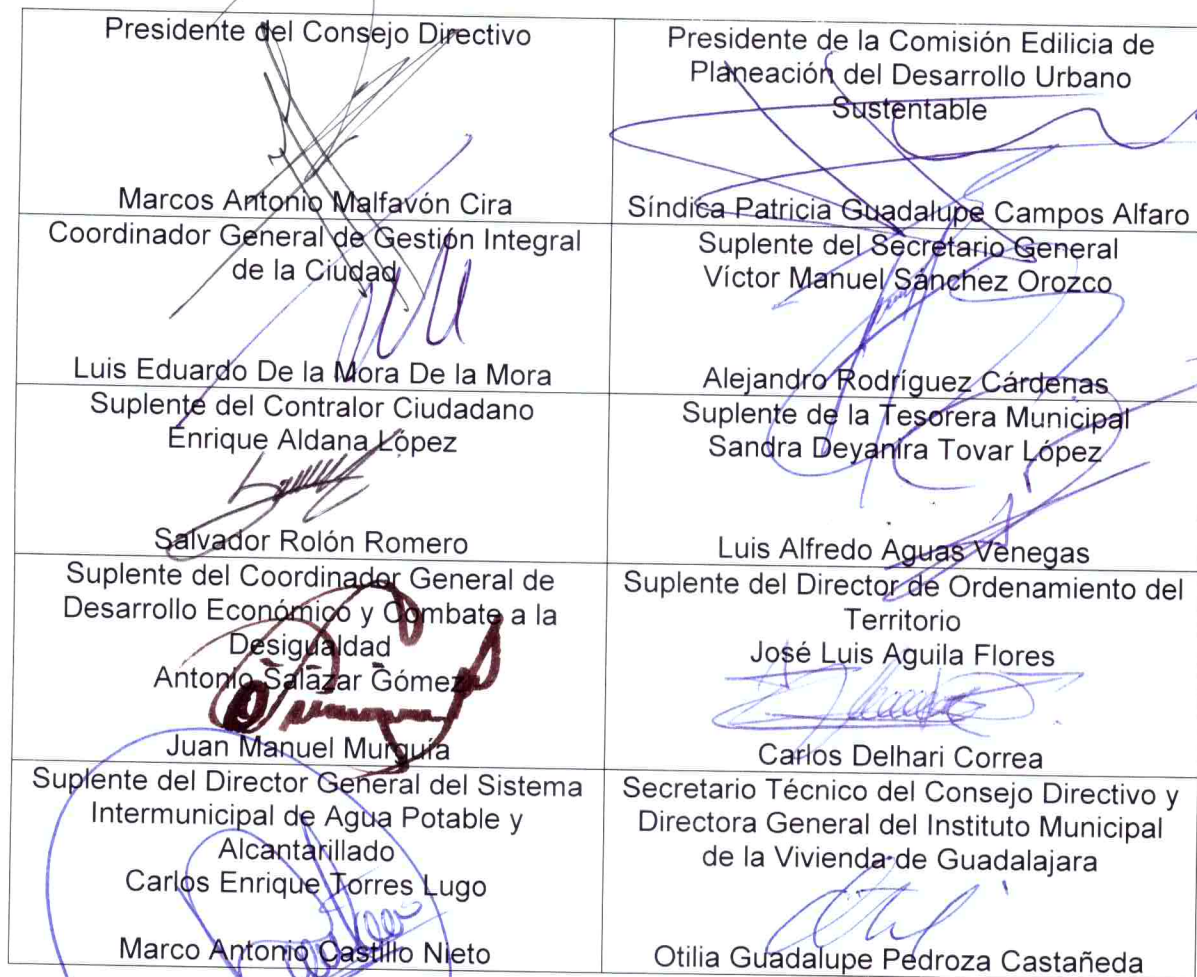 Presidente del Consejo Directivo
Marcos Antonio Malfavón Cira
Presidente de la Comisión Edilicia de
Planeación del Desarrollo Urbano
Sustentable
Síndica Patricia Guadalupe Campos Alfaro
Coordinador General de Gestión Integral
de la Ciudad
Luis Eduardo De la Mora De la Mora
Suplente del Secretario General
Víctor Manuel Sánchez Orozco
Alejandro Rodríguez Cárdenas
Suplente del Contralor Ciudadano
Enrique Aldana López
Salvador Rolón Romero
Suplente de la Tesorera Municipal
Sandra Deyanira Tovar López
Luis Alfredo Aguas Venegas
Suplente del Coordinador General de
Desarrollo Económico y Combate a la
Desigualdad
Antonio Salazar Gómez
Juan Manuel Murguía
Suplente del Director de Ordenamiento del
Territorio
José Luis Aguila Flores
Carlos Delhari Correa
Suplente del Director General del Sistema
Intermunicipal de Agua Potable y
Alcantarillado
Carlos Enrique Torres Lugo
Marco Antonio Castillo Nieto
Secretario Técnico del Consejo Directivo y
Directora General del Instituto Municipal
de la Vivienda de Guadalajara
Otilia Guadalupe Pedroza Castañeda